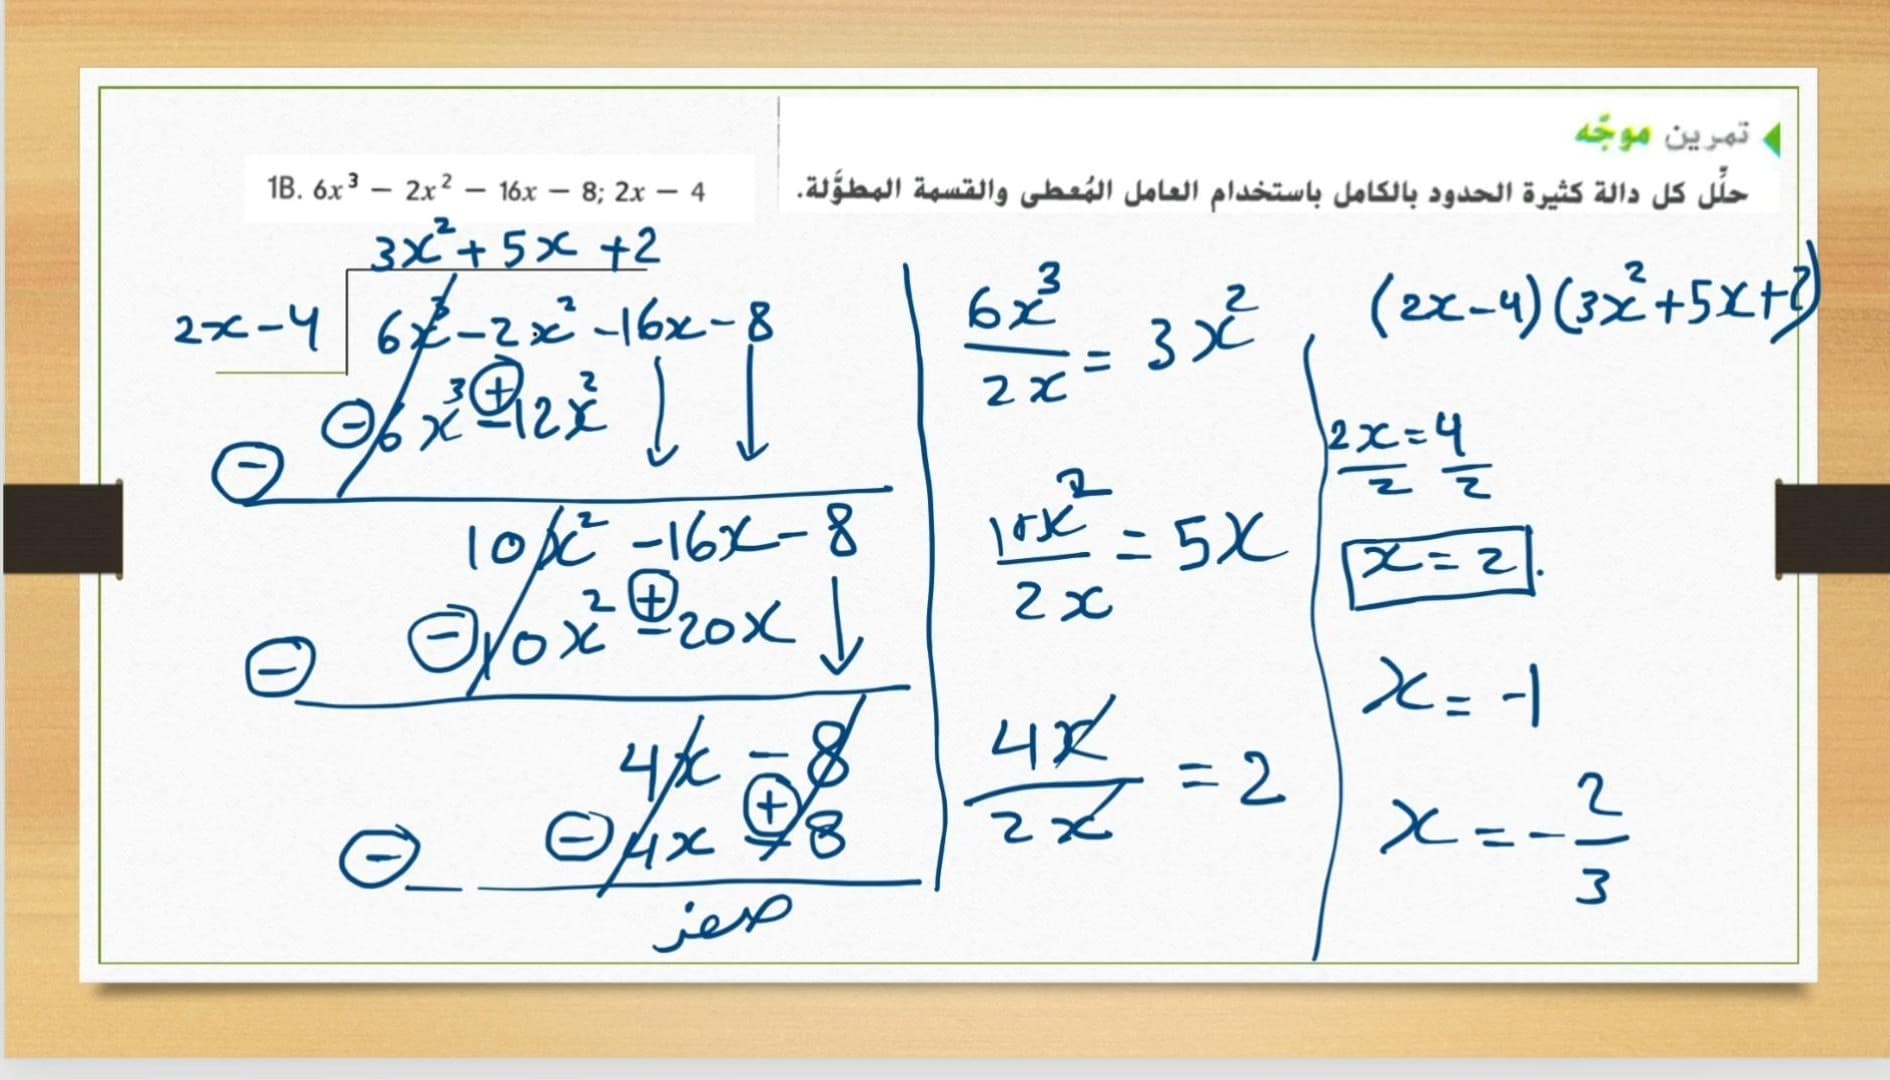 تمرين موجّه
حلِّل كل دالة كثيرة الحدود بالكامل باستخدام العامل المُعطى والقسمة المطوَّلة.
1B. 6x³ − 2x² − 16x − 8; 2x − 4
3x² + 5x + 2
2x-4 6x³ -2x² -16x -8
⊖6x³ ⊕ -12x²
⊖
10x² -16x - 8
⊖10x² ⊕ -20x
⊖
4x - 8
⊖4x ⊕ -8
⊖
صفر
6x³/2x = 3x²
10x²/2x = 5x
4x/2x = 2
(2x-4)(3x²+5x+2)
2x/2 = 4/2
x = 2.
x = -1
x = -2/3